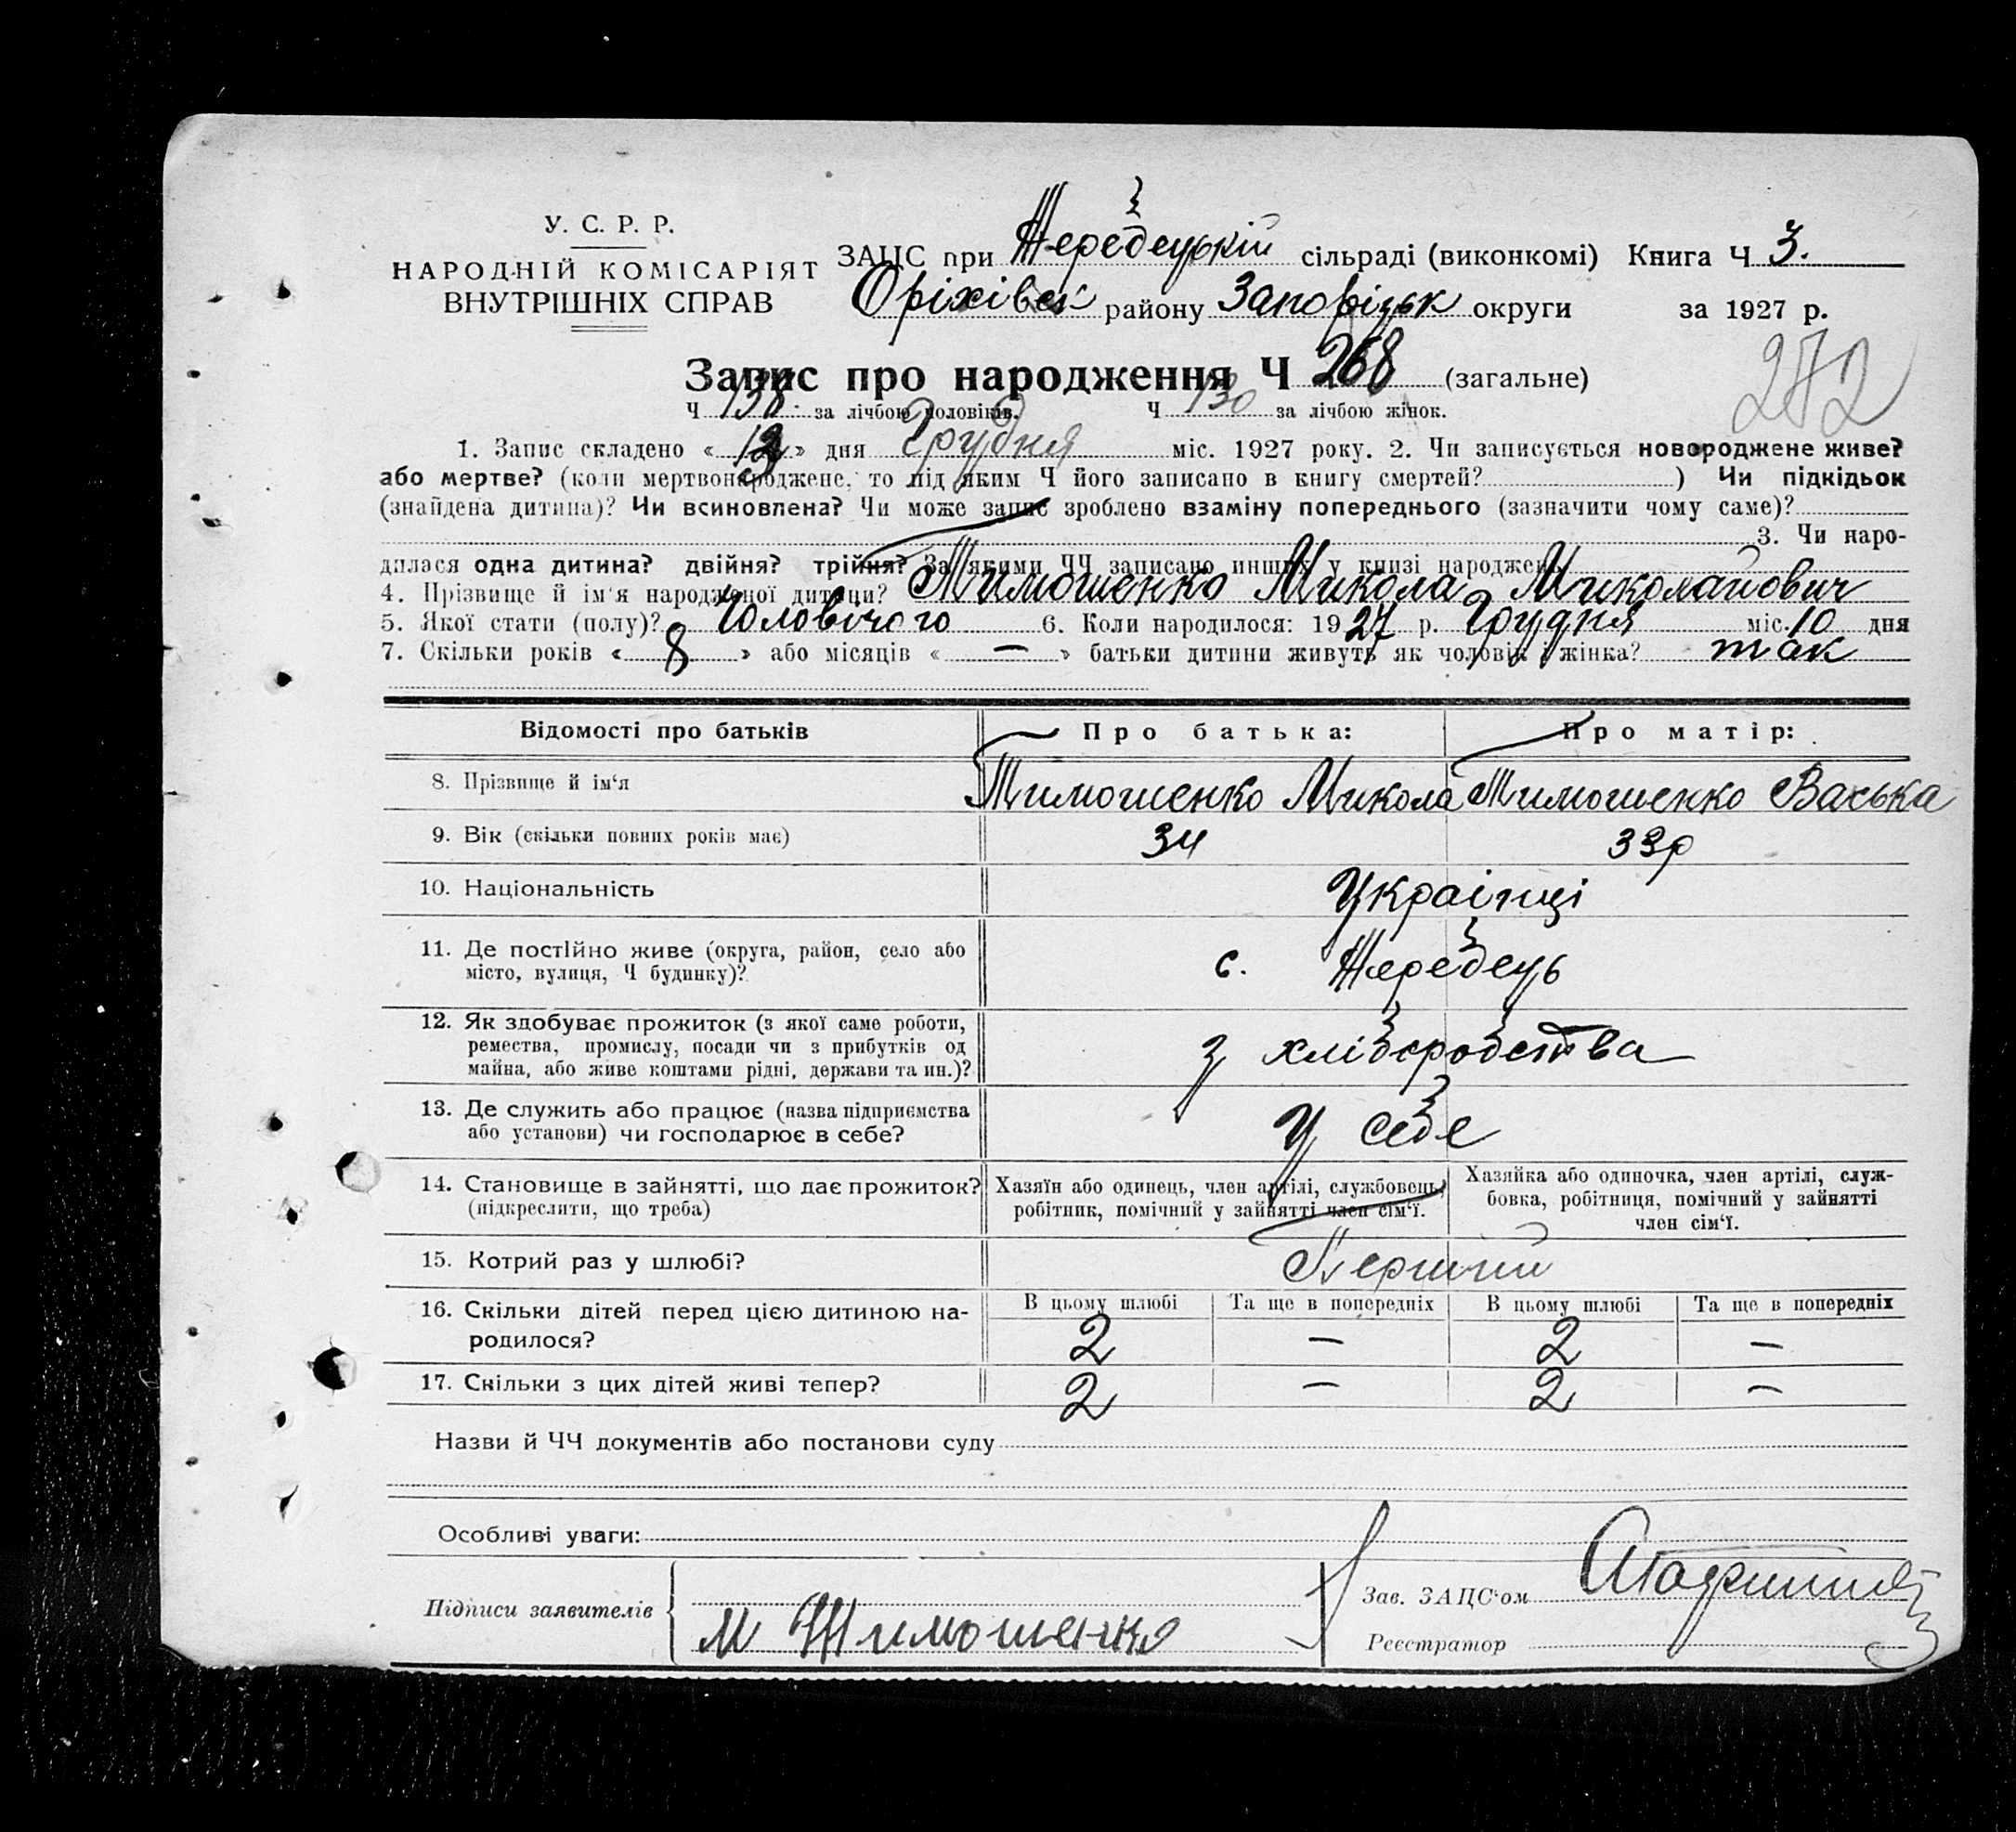 У. С. Р. Р.
НАРОДНІЙ КОМІСАРІЯТ
ВНУТРІШНІХ СПРАВ
ЗАЦС при Жеребецькій сільраді (виконкомі) Книга Ч 3.
Оріхівськ району Запорізьк округи за 1927 р.
272
Запис про народження Ч 268 (загальне)
Ч 138 за лічбою чоловіків. Ч 130 за лічбою жінок.
1. Запис складено « » дня Грудня міс. 1927 року. 2. Чи записується новороджене живе?
або мертве? (коли мертвонароджене, то під яким Ч його записано в книгу смертей? ) Чи підкідьок
(знайдена дитина)? Чи всиновлена? Чи може запис зроблено взаміну попереднього (зазначити чому саме)?
3. Чи наро-
дилася одна дитина? двійня? трійня? За якими ЧЧ записано инших у книзі народжень
4. Прізвище й ім'я народженої дитини? Тимошенко Микола Миколайович
5. Якої стати (полу)? Чоловічого 6. Коли народилося: 1927 р. Грудня міс. 10 дня
7. Скільки років « 8 » або місяців « — » батьки дитини живуть як чоловік і жінка? так
Відомості про батьків Про батька: Про матір:
8. Прізвище й ім'я Тимошенко Микола Тимошенко Васька
9. Вік (скільки повних років має) 34 33р
10. Національність Українці
11. Де постійно живе (округа, район, село або
місто, вулиця, Ч будинку)? с. Жеребець
12. Як здобуває прожиток (з якої саме роботи,
ремества, промислу, посади чи з прибутків од
майна, або живе коштами рідні, держави та ин.)? з хліборобства
13. Де служить або працює (назва підприємства
або установи) чи господарює в себе? У себе
14. Становище в зайнятті, що дає прожиток?
(підкреслити, що треба)
Хазяїн або одинець, член артілі, службовець,
робітник, помічний у зайнятті член сім'ї.
Хазяйка або одиночка, член артілі, служ-
бовка, робітниця, помічний у зайнятті
член сім'ї.
15. Котрий раз у шлюбі? Перший
16. Скільки дітей перед цією дитиною на-
родилося?
В цьому шлюбі Та ще в попередніх В цьому шлюбі Та ще в попередніх
2 — 2 —
17. Скільки з цих дітей живі тепер? 2 — 2 —
Назви й ЧЧ документів або постанови суду
Особливі уваги:
Підписи заявителів М Тимошенко
Зав. ЗАЦС'ом
Реєстратор